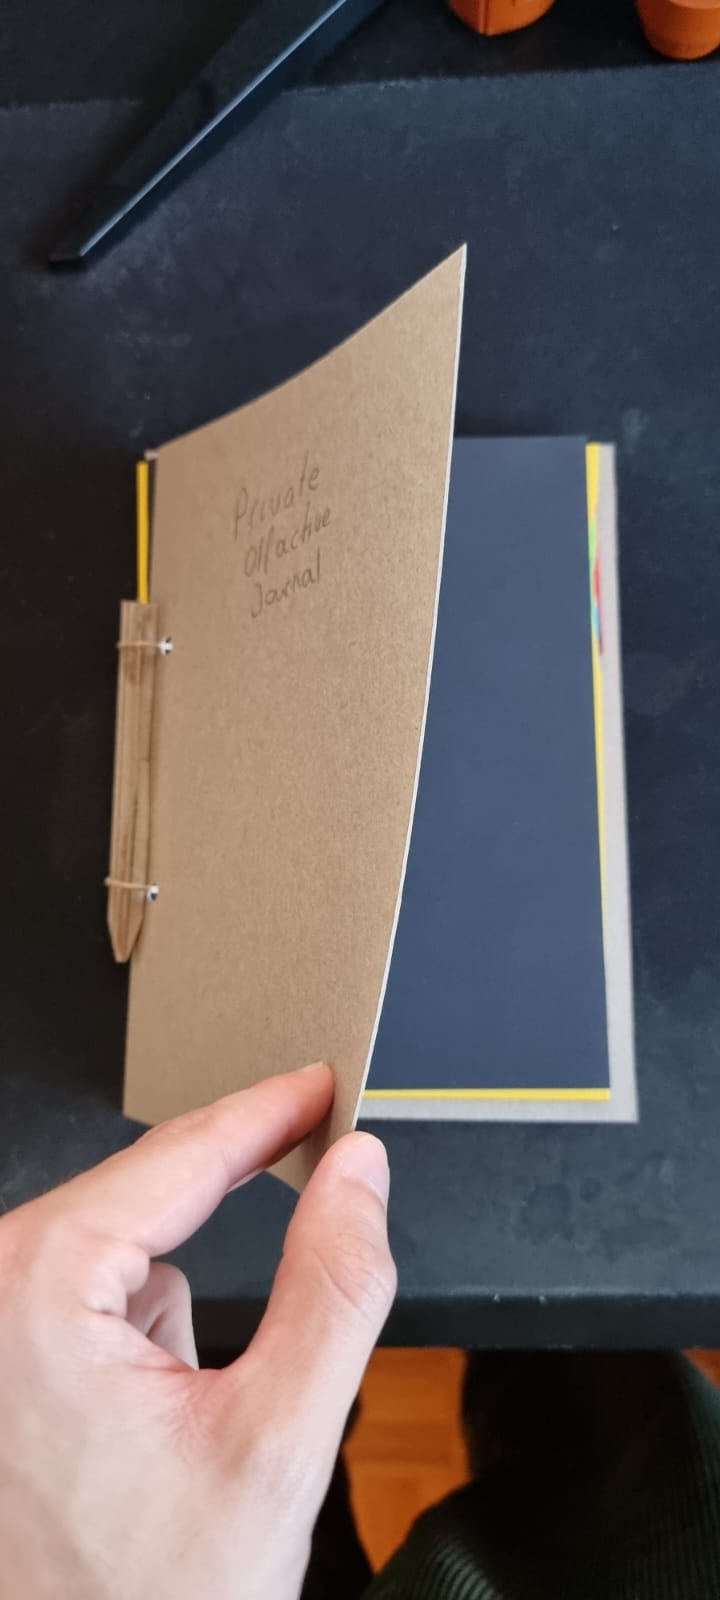 Private
Olfactive
Journal